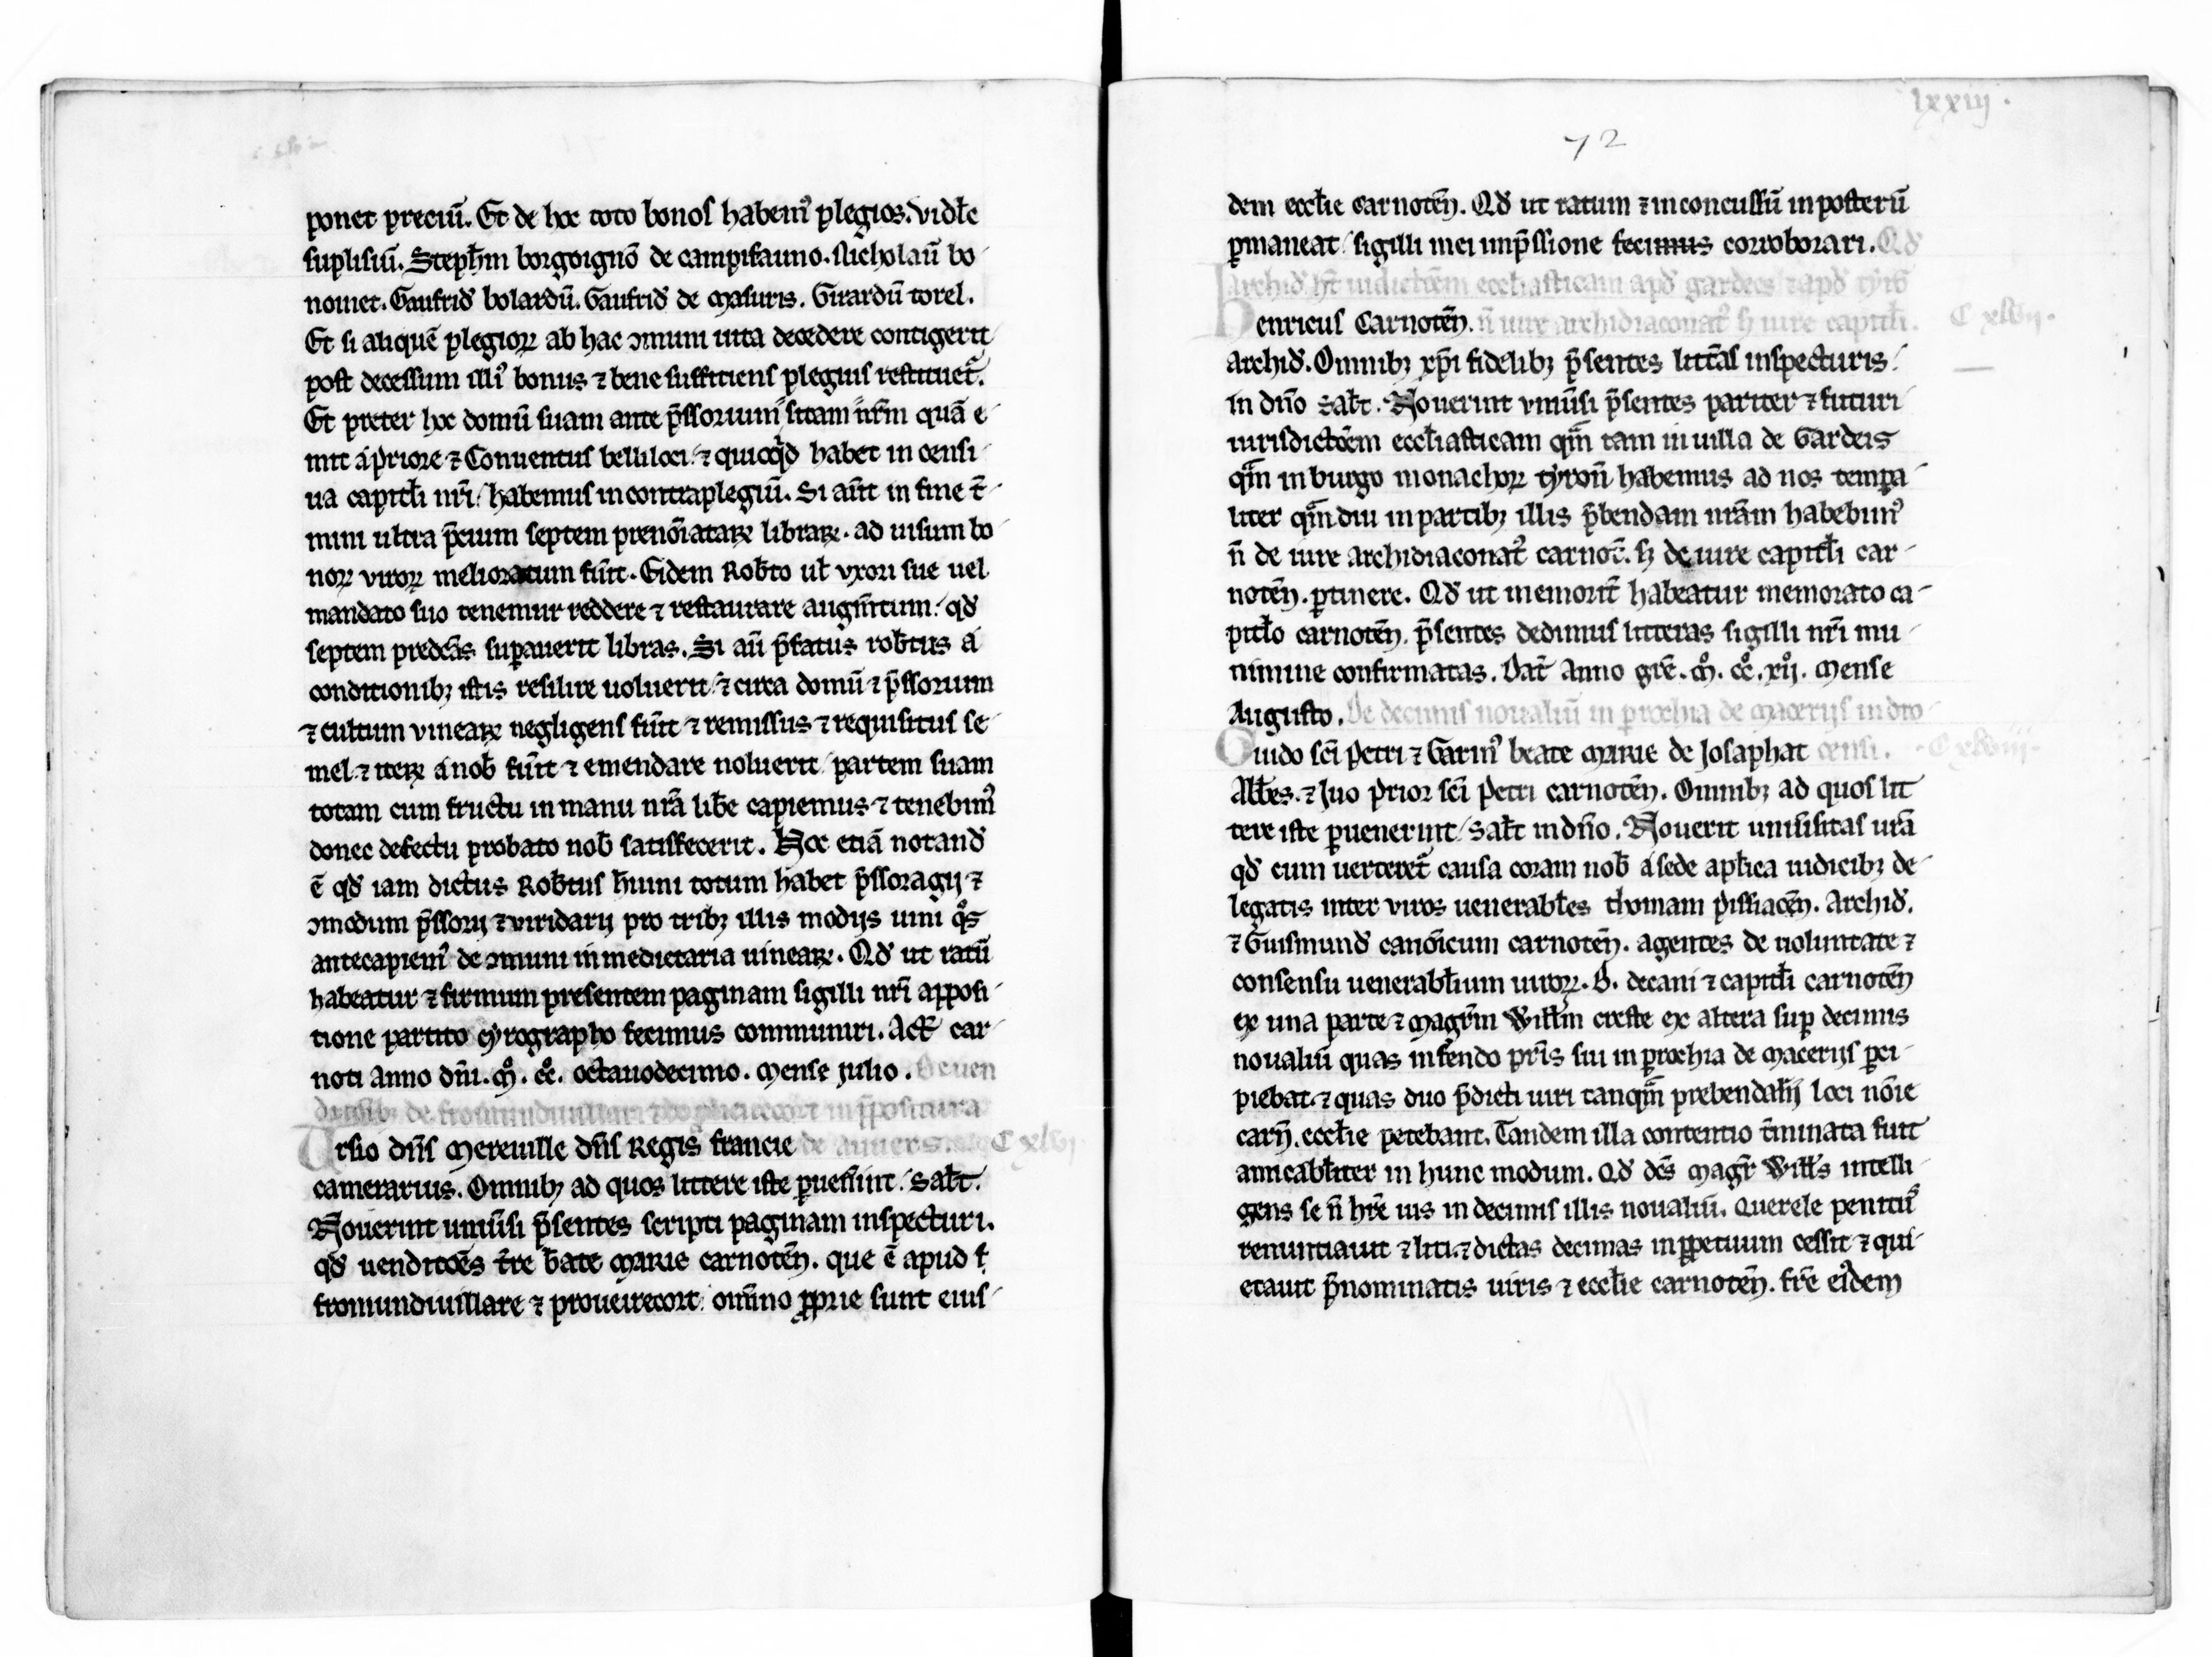 ponet preciū. Et de hoc toto bonos habem᷒ plegios. vidl̄c
suplisiū. Steph̄m borgoignō de campifauno. Nicholaū bo
nouiet. Gaufrid̄ bolardū. Gaufrid̄ de masuris. Girardū torel.
Et si aliquē plegioꝝ ab hac ꝯmuni uita decedere contigerit
post decessum illi᷒ bonus ⁊ bene sufficiens plegius restituet᷑.
Et preter hoc domū suam ante p̄ssorium sitam nr̄m quā e
mit a priore ⁊ Conuentus belliloci ⁊ quicq̄d habet in censi
ua capitl̄i nr̄i habemus in contraplegiū. Si aūt in fine t̄
mini ultra p̄cium septem prenoīataꝝ libraꝝ. ad uisum bo
noꝝ viroꝝ melioratum fūit. Eidem Rob̄to ul̄ vxori sue uel
mandato suo tenemur reddere ⁊ restaurare augm̄tum. qd̄
septem predc̄as suꝑauerit libras. Si aū p̄fatus rob̄tus a
conditionibꝫ istis resilire uoluerit ⁊ circa domū ⁊ p̄ssorium
⁊ cultum vineaꝝ negligens fūit ⁊ remissus ⁊ requisitus se
mel ⁊ iteꝝ a nob̄ fūit ⁊ emendare noluerit partem suam
totam cum fructu in manu nr̄a lib̄e capiemus ⁊ tenebim᷒
donec defectu probato nob̄ satisfecerit. Hoc etiā notand̄
ē qd̄ iam dictus Rob̄tus h̄mni totum habet p̄ssoragij ⁊
ꝯmodum p̄ssorij ⁊ viridarij pro tribꝫ illis modijs uini qͦs
antecapiem᷒ de ꝯmuni in medietaria uineaꝝ. Qd̄ ut ratū
habeatur ⁊ firmum presentem paginam sigilli nr̄i apposi
tione partito cyrographo fecimus communiri. Act̄ car
noti anno dn̄i. mͦ. ccͦ. octauodecimo. mense julio. De uen
de fromunduillari in p̄positura
Ursio dn̄s Mereuille dn̄i Regis francie de auuers. C xlvj
camerarius. Omnibꝫ ad quos littere iste ꝑuen̄int. Sal̄t.
Nouerint uniūsi p̄sentes scripti paginam inspecturi.
qd̄ uenditōes t̄re b̄ate marie carnoteñ. que ē apud f
fromundiuillare ⁊ proueirecort omīno ꝓprie sunt eius
lxxiij.
72
dem eccl̄ie carnoteñ. Qd̄ ut ratum ⁊ inconcussū in posterū
ꝑmaneat sigilli mei inp̄ssione fecimus corroborari. Qd̄
archid̄ h̄t iuridictōem eccl̄iasticam apd̄ gardees ⁊ apd̄ tyrō
Henricus Carnoteñ. n̄ iure archidiaconat᷒ sꝫ iure capitl̄i. C xlvij.
archid̄. Omnibꝫ xp̄i fidelibꝫ p̄sentes litt̄as inspecturis.
in dn̄o sal̄t. Nouerint vniūsi p̄sentes pariter ⁊ futuri
iurisdictōem eccl̄iasticam qm̄ tam in uilla de Gardeis
qm̄ in burgo monachoꝝ tyroñ habemus ad nos tempa
liter qm̄diu in partibꝫ illis p̄bendam nr̄am habebim᷒
n̄ de iure archidiaconat᷒ carnoc̄. sꝫ de iure capitl̄i car
noteñ. ꝑtinere. Qd̄ ut memorit̄ habeatur memorato ca
pitl̄o carnoteñ. p̄sentes dedimus litteras sigilli nr̄i mu
nimine confirmatas. Dat̄ Anno gr̄e. mͦ. ccͦ. xijͦ. Mense
Augusto. De decimis noualiū in ꝑrochia de macerijs in dro
Guido sc̄i Petri ⁊ Garin᷒ beate Marie de Josaphat censi. C xlviij.
Abb̄es. ⁊ Juo prior sc̄i Petri carnoteñ. Omnibꝫ ad quos lit
tere iste ꝑuenerint sal̄t in dn̄o. Nouerit uniūsitas ur̄a
qd̄ cum uerteret᷑ causa coram nob̄ a sede apl̄ica iudicibꝫ de
legatis inter viros uenerabl̄es thomam pissiaceñ. Archid̄.
⁊ Guismund̄ canoīcum carnoteñ. agentes de uoluntate ⁊
consensu uenerabl̄ium uiroꝝ. B. decani ⁊ capitl̄i carnoteñ
ex una parte ⁊ magr̄m Will̄m creste ex altera suꝑ decimis
noualiū quas in feudo pr̄is sui in ꝑrochia de Macerijs ꝑci
piebat ⁊ quas duo p̄dicti uiri tanqm̄ prebendarij loci noīe
carñ. eccl̄ie petebant. Tandem illa contentio t̄minata fuit
amicabl̄iter in hunc modum. Qd̄ dc̄s magr̄ Will̄s intelli
gens se n̄ hr̄e ius in decimis illis noualiū. Querele penit᷒
renuntiauit ⁊ liti ⁊ dictas decimas in ꝑpetuum cessit ⁊ qui
etauit p̄nominatis uiris ⁊ eccl̄ie carnoteñ. fr̄e ei᷒dem